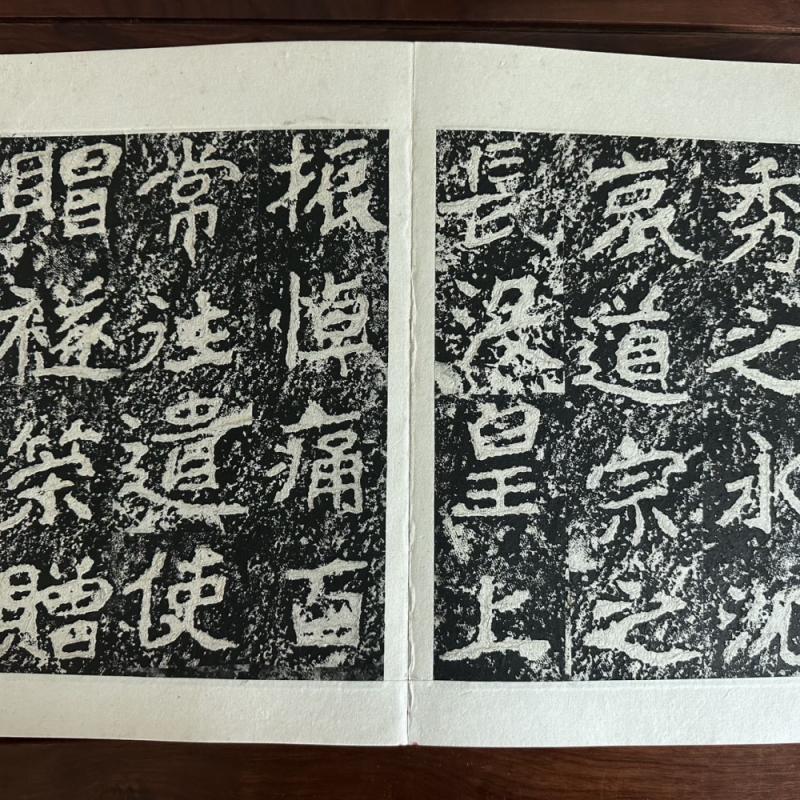 秀之永沉
哀道宗之
長皇上
振悼痛百
常往遣使
賵襚策贈